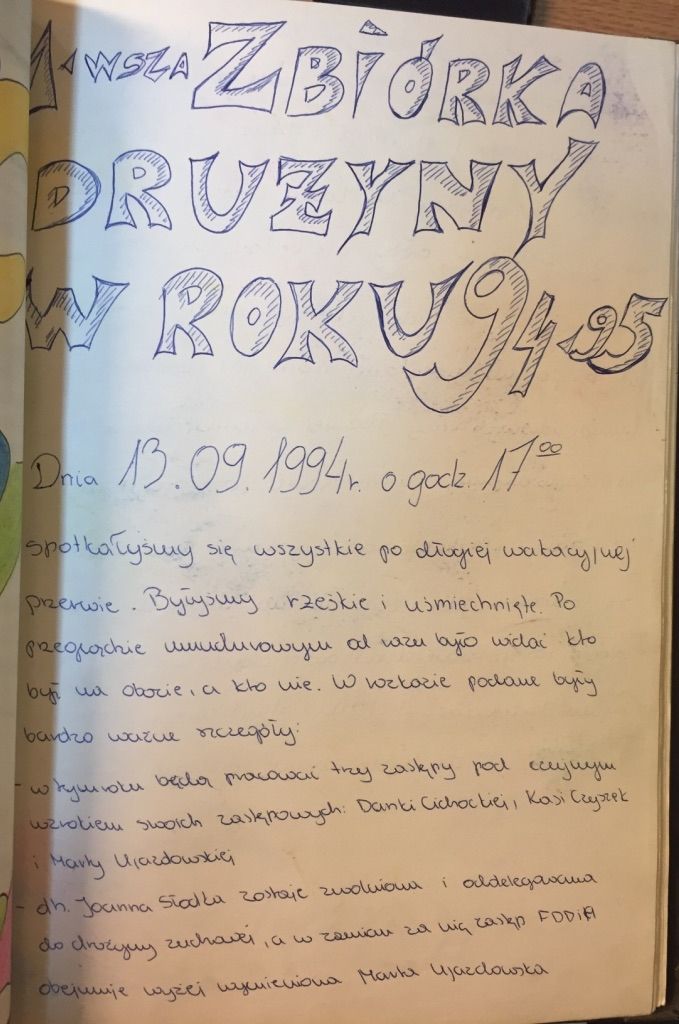 1-WSZA ZBIÓRKA
DRUŻYNY
W ROKU 94-95
Dnia 13.09.1994r. o godz. 17⁰⁰
spotkałyśmy się wszystkie po długiej wakacyjnej
przerwie. Byłyśmy rześkie i uśmiechnięte. Po
przeglądzie mundurowym od razu było widać kto
był na obozie, a kto nie. W rozkazie podane były
bardzo ważne szczegóły:
- w tym roku będą pracować trzy zastępy pod czujnym
wzrokiem swoich zastępowych: Danki Cichockiej, Kasi Czyżek
i Marty Ujazdowskiej
- dh. Joanna Siodła zostaje zwolniona i oddelegowana
do drużyny zuchowej, a w zamian za nią zastęp FDDiA
obejmuje wyżej wymieniona Marta Ujazdowska